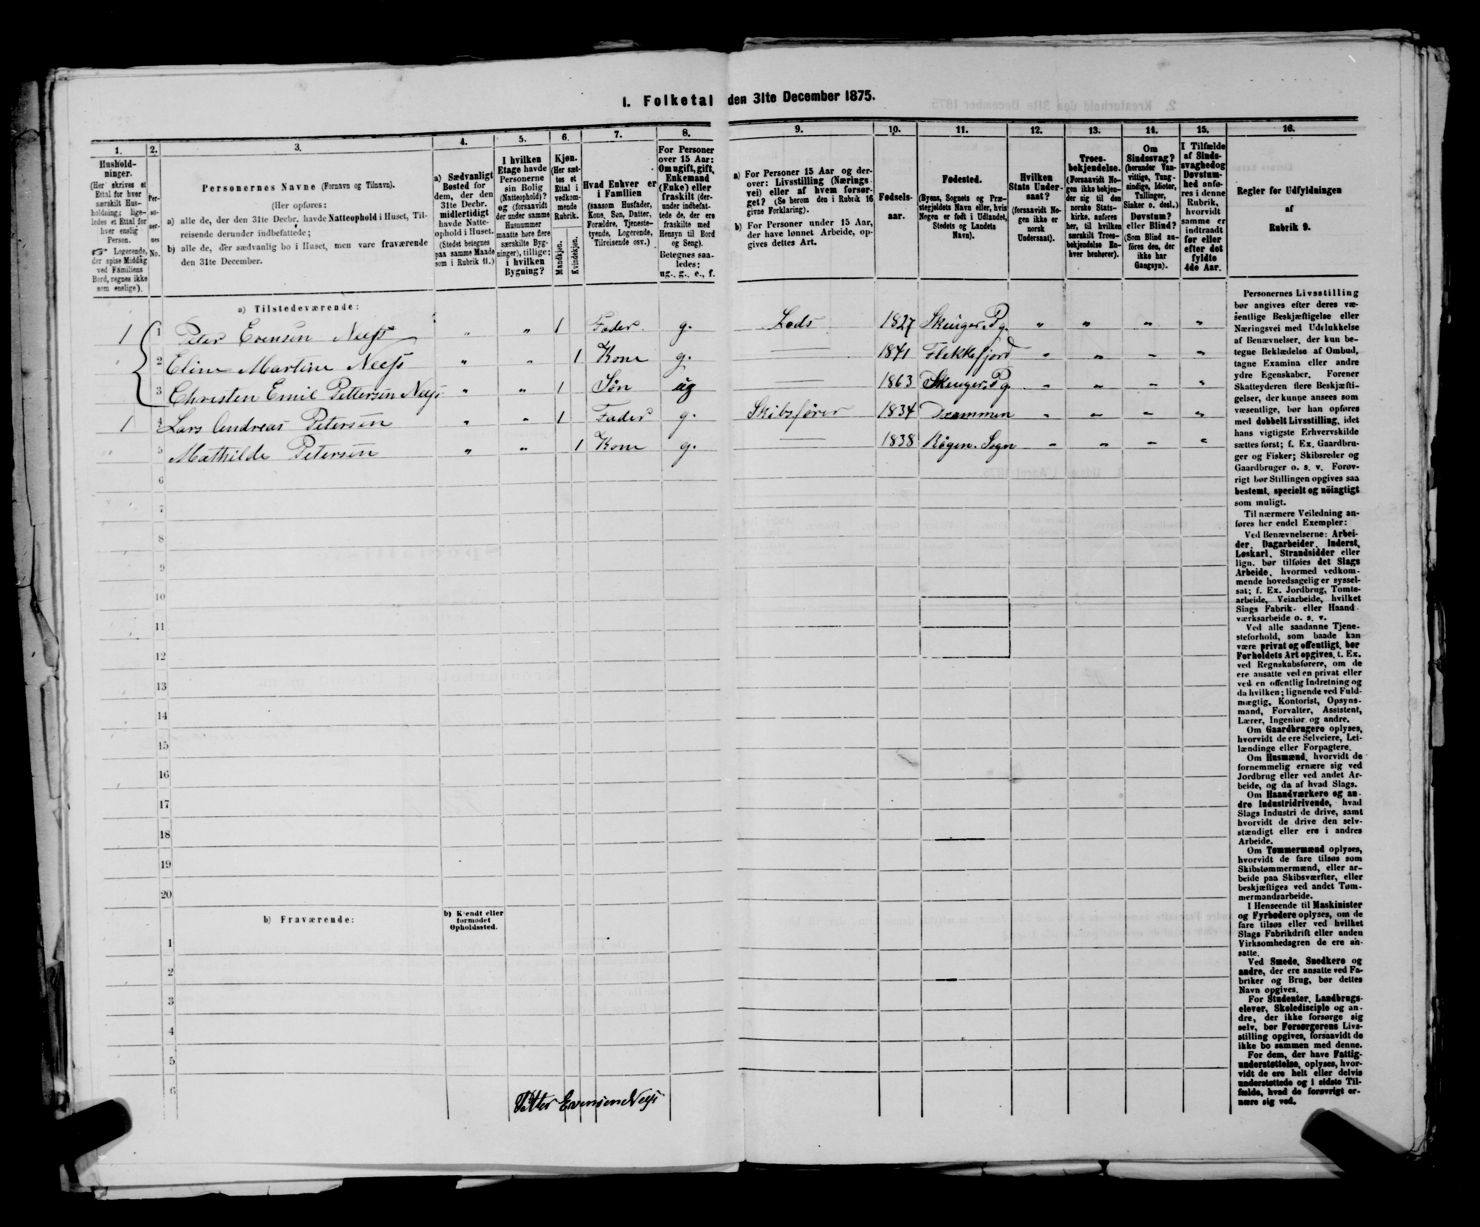 1. Folketal den 31te December 1875.
1.
Hushold-
ninger.
(Her skrives et
Ettal for hver
særskilt Hus-
holdning; lige-
ledes et Ettal for
hver enslig
Person.
☞ Logerende,
der spise Middag
ved Familiens
Bord, regnes ikke
som enslige).
2.
Per-
so-
ner-
nes
No.
3.
Personernes Navne (Fornavn og Tilnavn).
(Her opføres:
a) alle de, der den 31te Decbr. havde Natteophold i Huset, Til-
reisende derunder indbefattede;
b) alle de, der sædvanlig bo i Huset, men vare fraværende
den 31te December.
4.
a) Sædvanligt
Bosted for
dem, der den
31te Decbr.
midlertidigt
havde Natte-
ophold i Huset.
(Stedet betegnes
paa samme Maade
som i Rubrik 11.)
5.
I hvilken
Etage havde
Personerne
sin Bolig
(Natteophold)?
og (forsaavidt
der under samme
Husnummer
maatte høre flere
særskilte Byg-
ninger), tillige:
i hvilken
Bygning?
6.
Kjøn.
(Her sæt-
tes et
Ettal i
vedkom-
mende
Rubrik.
Mandkjøn.
Kvindekjøn.
7.
Hvad Enhver er
i Familien
(saasom Husfader,
Kone, Søn, Datter,
Forældre, Tjenest-
tyende, Logerende,
Tilreisende osv.)
8.
For Personer
over 15 Aar:
Om ugift, gift,
Enkemand
(Enke) eller
fraskilt (der-
under indbefat-
tede de, der ere
fraskilte med
Hensyn til Bord
og Seng).
Betegnes saa-
ledes:
ug., g., e., f.
9.
a) For Personer 15 Aar og der-
over: Livsstilling (Nærings-
vei) eller af hvem forsør-
get? (Se herom den i Rubrik 16
givne Forklaring).
b) For Personer under 15 Aar,
der have lønnet Arbeide, op-
gives dettes Art.
10.
Fødsels-
aar.
11.
Fødested.
(Byens, Sognets og Præ-
stegjeldets Navn eller, hvis
Nogen er født i Udlandet,
Stedets og Landets
Navn).
12.
Hvilken
Stats Under-
saat?
(forsaavidt No-
gen ikke er
norsk
Undersaat).
13.
Troes-
bekjendelse.
(Forsaavidt No-
gen ikke bekjen-
der sig til den
norske Stats-
kirke, anføres
her, til hvilken
særskilt Troes-
bekjendelse En-
hver henhører).
14.
Om
Sindssvag?
(herunder Van-
vittige, Tung-
sindige, Idioter,
Tullinger,
Sinker o. desl.)
Døvstum?
eller Blind?
(Som Blind an-
føres den, der
ikke har
Gangsyn).
15.
I Tilfælde
af Sinds-
svaghed og
Døvstum-
hed anfø-
res i denne
Rubrik,
hvorvidt
samme er
indtraadt
før eller
efter det
fyldte
4de Aar.
16.
Regler for Udfyldningen
af
Rubrik 9.
a) Tilstedeværende:
1 1 Peter Evensen Neess " " 1 Fader g. Lods 1827 Skeuger. Pg. " " " "
2 Eline Martine Neess " " 1 Kone g. 1841 Flekkefjord " " " "
3 Christen Emil Pettersen Neess " " 1 Søn ug 1863 Skeuger. Pg. " " " "
1 4 Lars Andreas Petersen " " 1 Fader g. Skibsfører 1834 Drammen " " " "
5 Mathilde Petersen " " 1 Kone g. 1838 Røgen. Sogn " " " "
6
7
8
9
10
11
12
13
14
15
16
17
18
19
20
b) Fraværende:
b) Kjendt eller
formodet
Opholdssted.
1
2
3
4
5
6
Petter Evensen Neess
Personernes Livsstilling
bør angives efter deres væ-
sentlige Beskjæftigelse eller
Næringsvei med Udelukkelse
af Benævnelser, der kun be-
tegne Beklædelse af Ombud,
tagne Examina eller andre
ydre Egenskaber. Forener
Skatteyderen flere Beskjæfti-
gelser, der kunne ansees som
væsentlige, bør han opføres
med dobbelt Livsstilling, idet
hans vigtigste Erhvervskilde
sættes først; f. Ex. Gaardbru-
ger og Fisker; Skibsreder og
Gaardbruger o. s. v. Forøv-
rigt bør Stillingen opgives saa
bestemt, specielt og nöiagtigt
som muligt.
Til nærmere Veiledning an-
føres her endel Exempler:
Ved Benævnelserne: Arbei-
der, Dagarbeider, Inderst,
Løskarl, Strandsidder eller
lign. bør tilføies det Slags
Arbeide, hvormed vedkom-
mende hovedsagelig er syssel-
sat; f. Ex. Jordbrug, Tomte-
arbeide, Veiarbeide, hvilket
Slags Fabrik- eller Haand-
værksarbeide o. s. v.
Ved alle saadanne Tjene-
steforhold, som baade kan
være privat og offentligt, bør
Forholdets Art opgives, t. Ex.
ved Regnskabsførere, om de
ere ansatte ved en privat eller
ved en offentlig Indretning og
da hvilken; lignende ved Fuld-
mægtig, Kontorist, Opsyns-
mand, Forvalter, Assistent,
Lærer, Ingeniør og andre.
Om Gaardbrugere oplyses,
hvorvidt de ere Selveiere, Lei-
lændinge eller Forpagtere.
Om Husmænd, hvorvidt de
fornemmelig ernære sig ved
Jordbrug eller ved andet Ar-
beide, og da af hvad Slags.
Om Haandværkere og an-
dre Industridrivende, hvad
Slags Industri de drive, samt
hvorvidt de drive den selv-
stændigt eller ere i andres
Arbeide.
Om Tømmermænd oplyses,
hvorvidt de fare tilsøs som
Skibstømmermænd, eller ar-
beide paa Skibsværfter, eller
beskjæftiges ved andet Tøm-
mermandsarbeide.
I Henseende til Maskinister
og Fyrbødere oplyses, om de
fare tilsøs eller ved hvilket
Slags Fabrikdrift eller anden
Virksomhedsgren de ere an-
satte.
Ved Smede, Snedkere og
andre, der ere ansatte ved Fa-
briker og Brug, bør dettes
Navn opgives.
For Studenter, Landbrugs-
elever, Skoledisciple og an-
dre, der ikke forsørge sig
selv, bør Forsørgerens Livs-
stilling opgives, forsaavidt de
ikke bo sammen med denne.
For dem, der have Fattig-
understøttelse, oplyses, hvor-
vidt de ere helt eller delvis
understøttede og i sidste Til-
fælde, hvad de forøvrigt er-
nære sig ved.